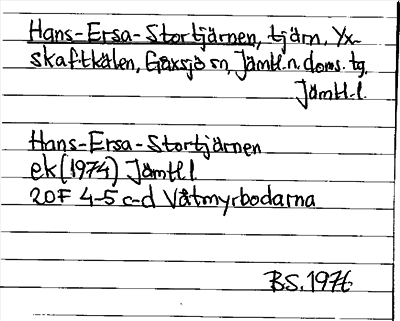 Hans-Ersa-Stortjärnen, tjärn, Yx-
skaftkälen, Gåxsjö sn, Jämtl.n. doms. tg,
Jämtl.l.
Hans-Ersa-Stortjärnen
ek (1974) Jämtl l
20F 4-5 c-d Våtmyrbodarna
BS. 1976